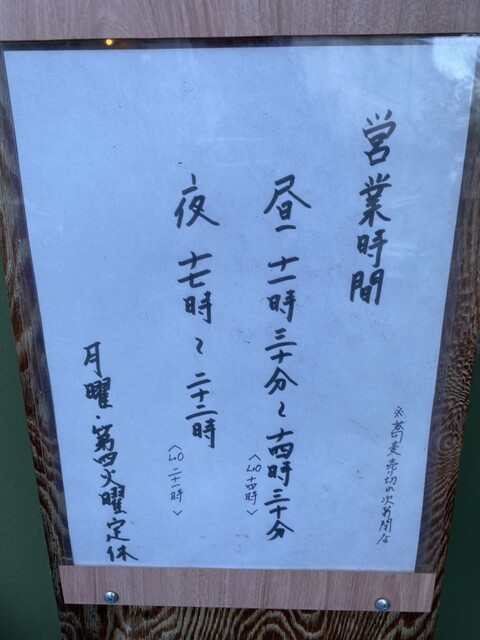 営業時間
※蕎麦売切れ次第閉店
昼 十一時三十分〜十四時三十分
〈LO 十四時〉
夜 十七時〜二十二時
〈LO 二十一時〉
月曜・第四火曜定休